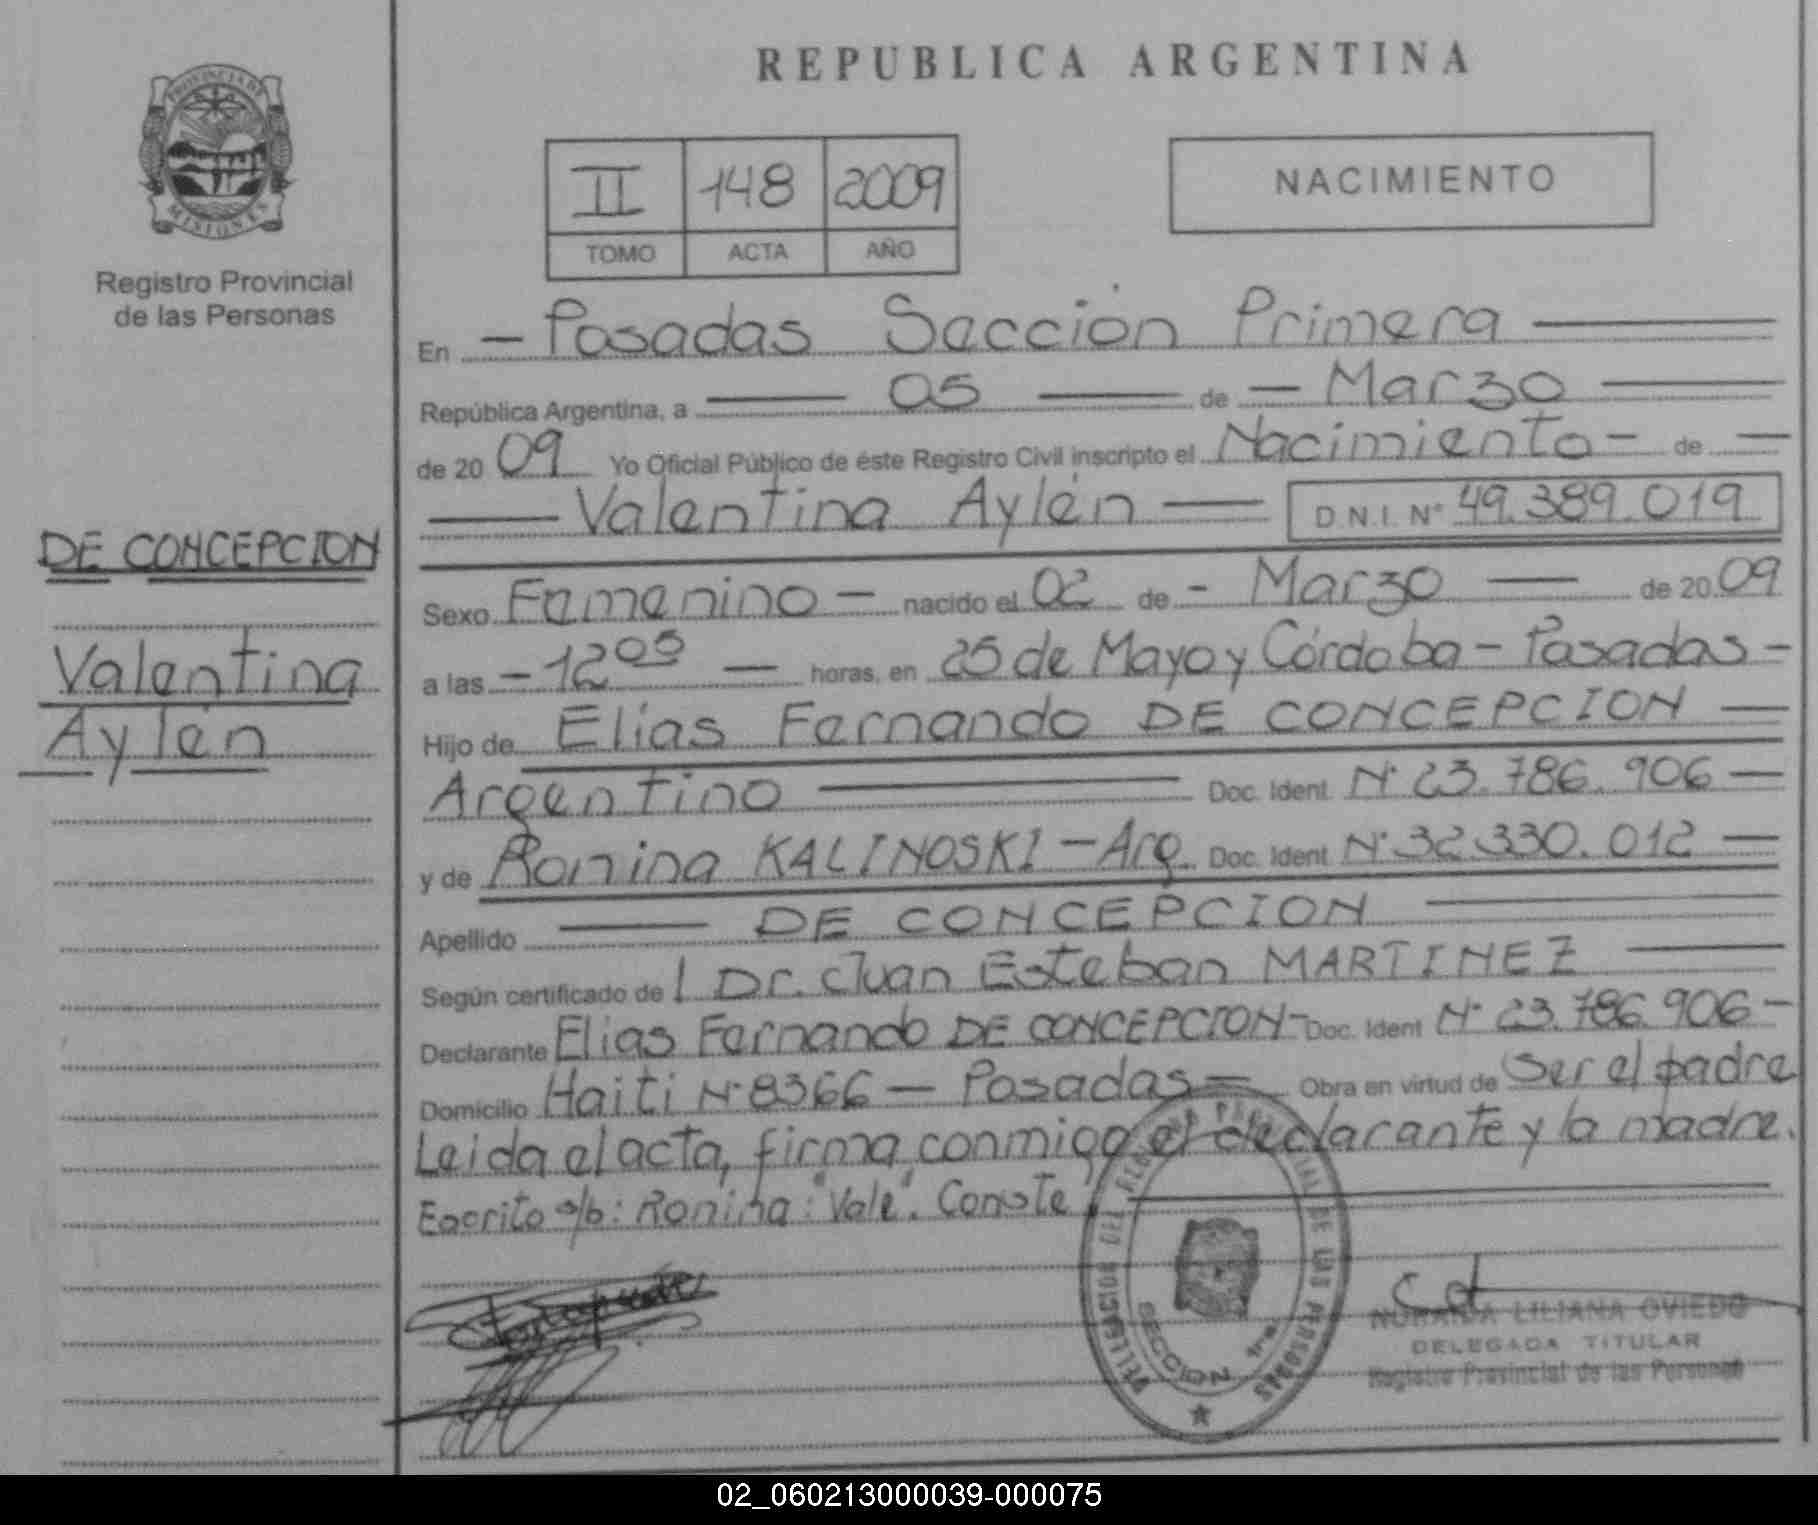 REPUBLICA ARGENTINA
PROVINCIA DE
MISIONES
Registro Provincial
de las Personas
DE CONCEPCION
Valentina
Aylén
II 148 2009
TOMO ACTA AÑO
NACIMIENTO
En - Posadas Sección Primera
República Argentina, a 05 de - Marzo
de 20 09 Yo Oficial Público de éste Registro Civil inscripto el Nacimiento - de -
Valentina Aylén D.N.I. N° 49.389.019
Sexo Femenino - nacido el 02 de - Marzo de 20 09
a las - 12 05 - horas, en 25 de Mayo y Córdoba - Posadas -
Hijo de Elias Fernando DE CONCEPCION
Argentino Doc. Ident. N° 23.786.906 -
y de Ronina KALINOSKI - Arg. Doc. Ident N° 32.330.012 -
Apellido DE CONCEPCION
Según certificado de l Dr. Juan Esteban MARTINEZ
Declarante Elias Fernando DE CONCEPCION - Doc. Ident N° 23.786.906 -
Domicilio Haiti N° 8366 - Posadas - Obra en virtud de Ser el padre
Leida el acta, firma conmigo el declarante y la madre.
Escrito s/b: Ronina: "Vale". Conste
DEL REGISTRO PROVINCIAL DE LAS PERSONAS
SECCION 1ra
LILIANA OVIEDO
DELEGADA TITULAR
Registro Provincial de las Personas
02_060213000039-000075